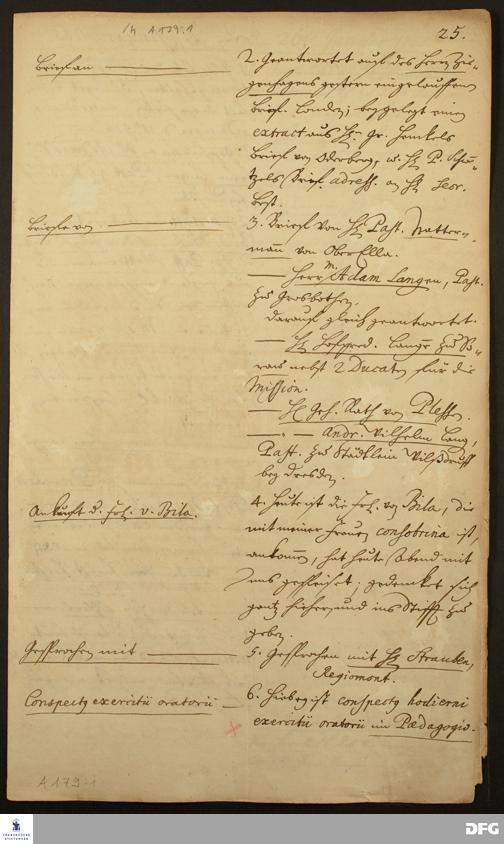 /h A 179:1
25.
Briefe an
2. Geantwortet auf des Herrn Zie-
genhagens gestern eingelauffenen
Brief. London; beygelegt einen
extract aus Hn. Gr. Henkels
Brief von Oderberg, u. H. P. Schu-
tzes Brief. adress. an H. Secr.
Best.
Briefe von
3. Brief von H. Past. Natter-
mann von OberElla.
— Herr M. Adam Langen, Past.
zu Grosbothen.
darauf gleich geantwortet.
— H. Hofpred. Lange zu So-
rau nebst 2 Ducaten für die
Mission.
— H. Geh. Rath von Plessen.
— " — Andr. Wilhelm Lang,
Past. zu Städtlein Wilßdruff
bey Dresden.
Ankunft d. Frl. v. Bila.
4. Heute ist die Frl. von Bila, die
mit meiner Frauen consobrina ist,
ankommen, hat heute Abend mit
uns gespeiset; gedencket sich
gantz hieher und ins Stifft zu
geben.
Gesprochen mit
5. Gesprochen mit H. Strauben,
Regiomont.
Conspectus exercitii oratorii
6. Hiebey ist conspectus hodierni
exercitii oratorii im Pædagogio.
A 179:1
FRANCKESCHE
STIFTUNGEN
DFG